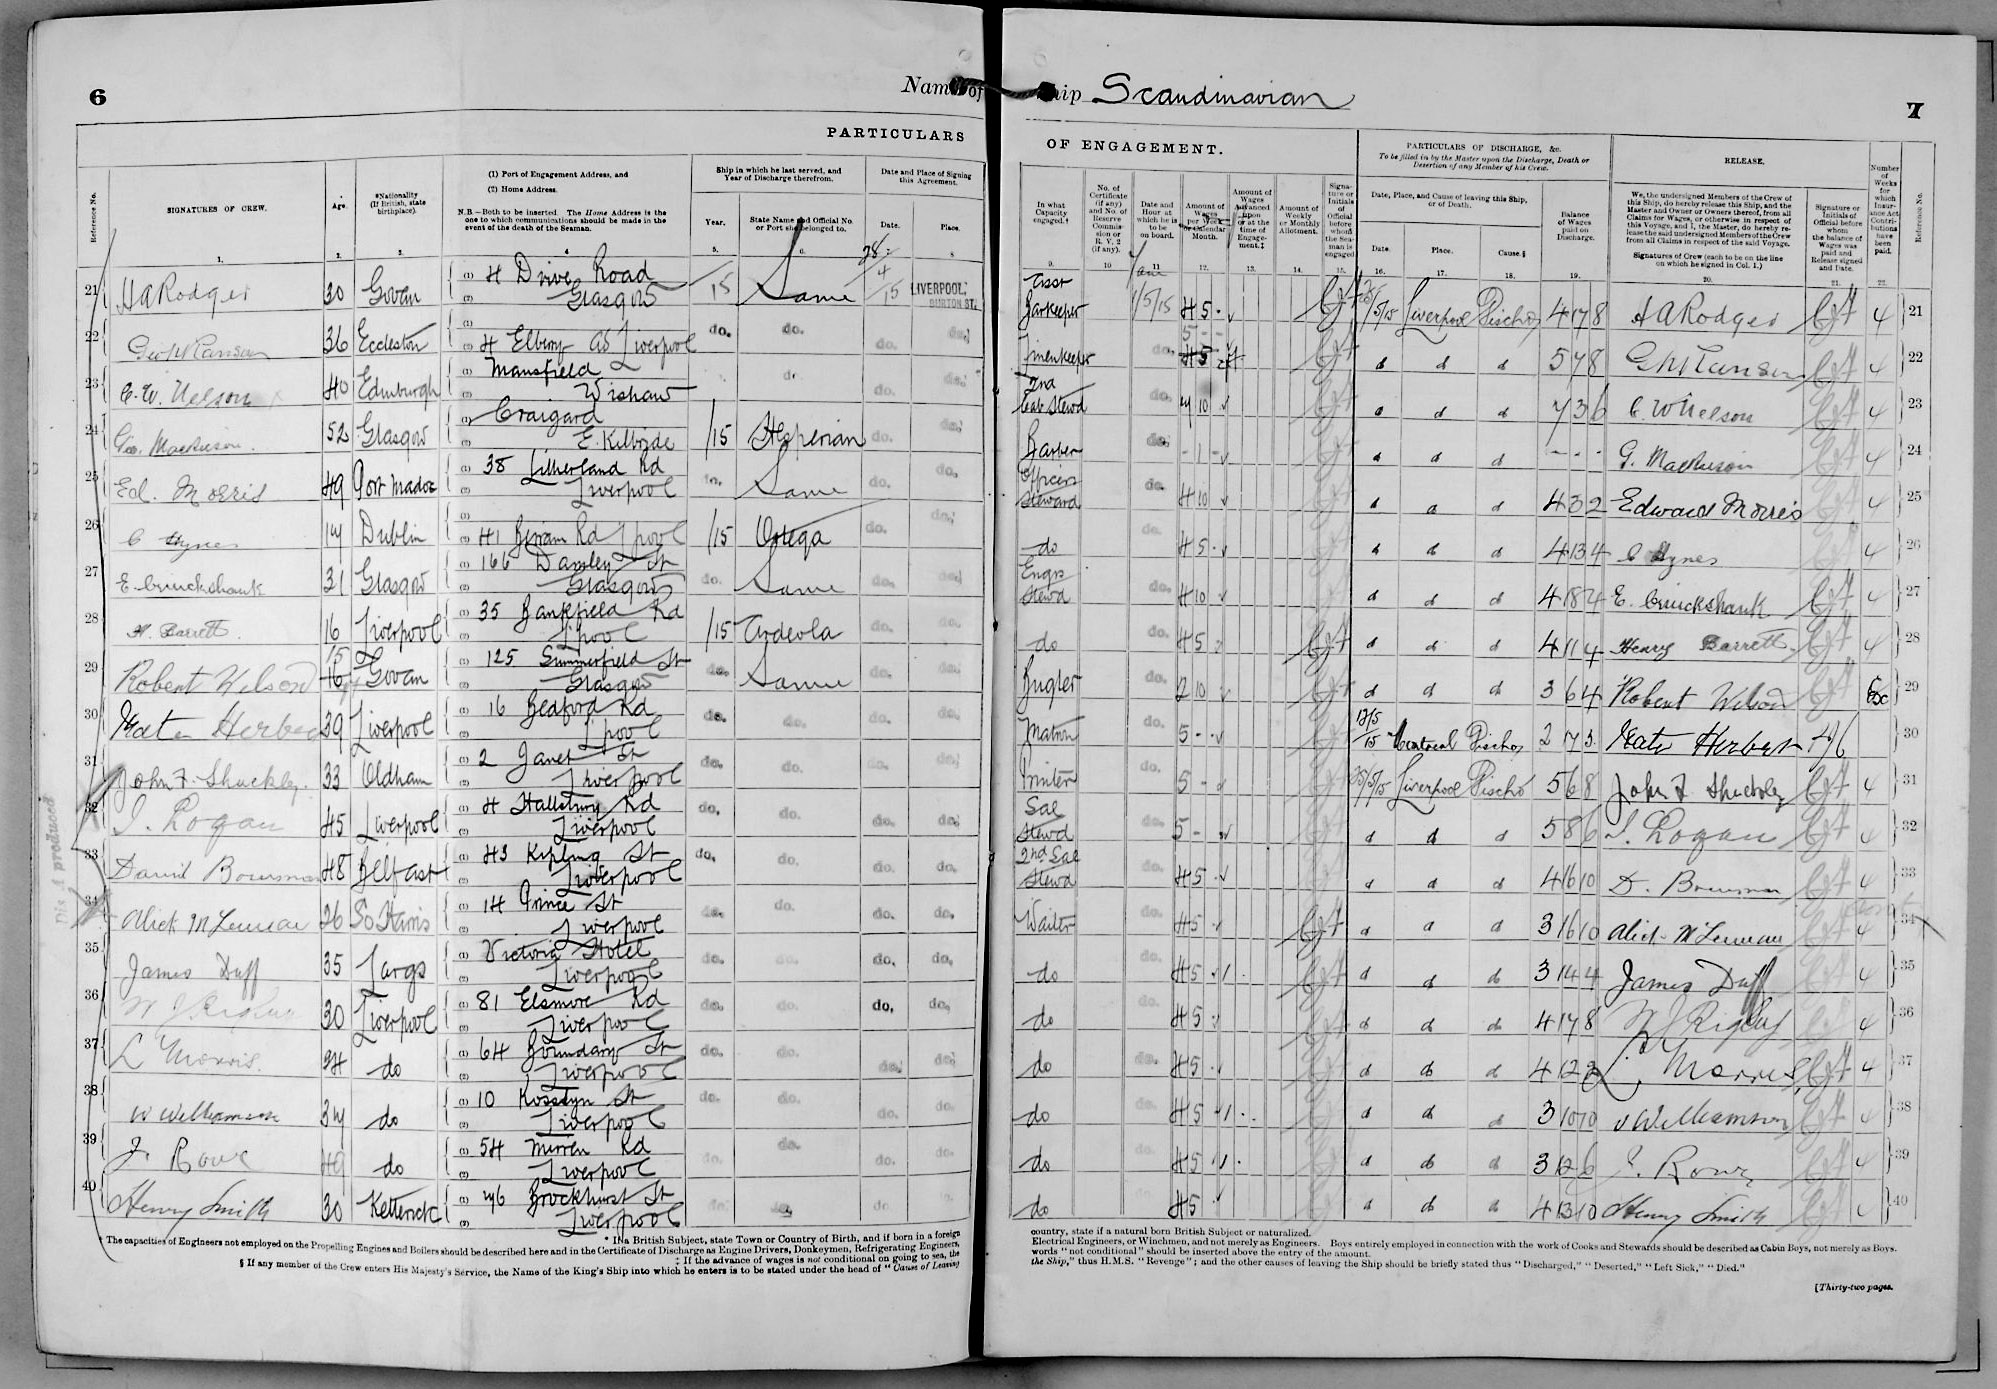 6
Name of
PARTICULARS
Reference No.
SIGNATURES OF CREW.
Age.
*Nationality (If British, state birthplace).
(1) Port of Engagement Address, and
(2) Home Address.
N.B.—Both to be inserted. The Home Address is the one to which communications should be made in the event of the death of the Seaman.
Ship in which he last served, and Year of Discharge therefrom.
Year.
State Name and Official No. or Port she belonged to.
Date and Place of Signing this Agreement.
Date.
Place.
1. 2. 3. 4 5. 6. 8
21 H A Rodger 30 Govan (1) 4 Drive Road (2) Glasgow 15 Same 28/4/15 LIVERPOOL, BURTON ST.
22 36 Eccleston (1) (2) 4 Liverpool do. do. do.
23 C. W. Nelson 40 Edinburgh (1) Mansfield (2) Wishaw do. do. do.
24 Geo. 52 Glasgow (1) Craigard (2) E. Kilbride /15 Hesperian do. do.
25 Ed. Morris 49 Port Madoc (1) 38 Litherland Rd (2) Liverpool do. Same do. do.
26 C Hynes Dublin (1) (2) 41 Rd Lpool /15 Ortega do. do.
27 E. Cruickshank 31 Glasgow (1) 166 St (2) Glasgow do. Same do. do.
28 H. Barrett 16 Liverpool (1) 35 Bankfield Rd (2) Lpool /15 Ardeola do. do.
29 Robert Wilson 16 Govan (1) 125 Summerfield St (2) Glasgow do. Same do. do.
30 Kate Herbert 39 Liverpool (1) 16 Bedford Rd (2) Lpool do. do. do. do.
31 John F. Shuckley 33 Oldham (1) 2 Janet St (2) Liverpool do. do. do. do.
32 J. Logan 45 Liverpool (1) 4 Rd (2) Liverpool do. do. do. do.
33 David Bowman 48 Belfast (1) 43 Kipling St (2) Liverpool do. do. do. do.
34 Alick McLennan 26 So Harris (1) 14 Prince St (2) Liverpool do. do. do. do.
35 James Duff 35 Largs (1) Victoria Hotel (2) Liverpool do. do. do. do.
36 W J Rigby 30 Liverpool (1) 81 Elsmere Rd (2) Liverpool do. do. do. do.
37 L Morris. 34 do (1) 64 Boundary St (2) Liverpool do. do. do. do.
38 W Williamson do (1) 10 Rosslyn St (2) Liverpool do. do. do. do.
39 J. Rowe 49 do (1) 54 Rd (2) Liverpool do. do. do. do.
40 Henry Smith 30 (1) 76 Brockhurst St (2) Liverpool do. do. do
Dis A produced
* If a British Subject, state Town or Country of Birth, and if born in a foreign
† The capacities of Engineers not employed on the Propelling Engines and Boilers should be described here and in the Certificate of Discharge as Engine Drivers, Donkeymen, Refrigerating Engineers,
‡ If the advance of wages is not conditional on going to sea, the
§ If any member of the Crew enters His Majesty's Service, the Name of the King's Ship into which he enters is to be stated under the head of "Cause of Leaving
Ship Scandinavian
7
OF ENGAGEMENT.
PARTICULARS OF DISCHARGE, &c.
To be filled in by the Master upon the Discharge, Death or Desertion of any Member of his Crew.
RELEASE.
In what Capacity engaged.†
No. of Certificate (if any) and No. of Reserve Commission or R.V. 2 (if any).
Date and Hour at which he is to be on board.
Amount of Wages per Week or Calendar Month.
Amount of Wages Advanced upon or at the time of Engagement.‡
Amount of Weekly or Monthly Allotment.
Signature or Initials of Official before whom the Seaman is engaged
Date, Place, and Cause of leaving this Ship, or of Death.
Date.
Place.
Cause.§
Balance of Wages paid on Discharge.
We, the undersigned Members of the Crew of this Ship, do hereby release this Ship, and the Master and Owner or Owners thereof, from all Claims for Wages, or otherwise in respect of this Voyage, and I, the Master, do hereby release the said undersigned Members of the Crew from all Claims in respect of the said Voyage.
Signatures of Crew (each to be on the line on which he signed in Col. 1.)
Signature or Initials of Official before whom the balance of Wages was paid and Release signed and Date.
Number of Weeks for which Insurance Act Contributions have been paid.
Reference No.
9. 10 11 12. 13. 14. 15. 16. 17. 18. 19. 20. 21. 22.
Asst Barkeeper 1/5/15 4 5 Liverpool Discho 4 17 8 H A Rodger 4 21
Linenkeeper do. 5 d d d 5 7 8 4 22
2nd Cab Stewd do. 7 10 d d d 7 3 6 C. W Nelson 4 23
Barber do. - 1 - d d d - - - G. 4 24
Officers Steward do. 4 10 d d d 4 3 2 Edward Morris 4 25
do do. 4 5 d d d 4 13 4 C Hynes 4 26
Engrs Stewd do. 4 10 d d d 4 18 4 E. Cruickshank 4 27
do do. 4 5 d d d 4 11 4 Henry Barrett 4 28
Bugler do. 2 10 d d d 3 6 4 Robert Wilson 29
Matron do. 5 - 12/5/15 Montreal Discho 2 17 3 Kate Herbert 30
Printer do. 5 - Liverpool Discho 5 6 8 John F Shuckley 4 31
Sal Stewd do. 5 - d d d 5 8 6 J. Logan 4 32
2nd Sal Stewd do. 4 5 d d d 4 16 10 D. Bowman 4 33
Waiter do. 4 5 d d d 3 16 10 Alick McLennan 4 34
do do. 4 5 d d d 3 14 4 James Duff 4 35
do do. 4 5 d d d 4 17 8 W J Rigby 4 36
do do. 4 5 d d d 4 12 2 L. Morris 4 37
do do. 4 5 d d d 3 10 10 W Williamson 4 38
do do. 4 5 d d d 3 12 6 J. Rowe 4 39
do do. 4 5 d d d 4 13 10 Henry Smith 4 40
country, state if a natural born British Subject or naturalized.
Electrical Engineers, or Winchmen, and not merely as Engineers. Boys entirely employed in connection with the work of Cooks and Stewards should be described as Cabin Boys, not merely as Boys.
words "not conditional" should be inserted above the entry of the amount.
the Ship," thus H.M.S. "Revenge"; and the other causes of leaving the Ship should be briefly stated thus "Discharged," "Deserted," "Left Sick," "Died."
[Thirty-two pages.